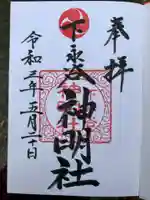 奉拝
下永谷
神明社
令和三年五月二十日